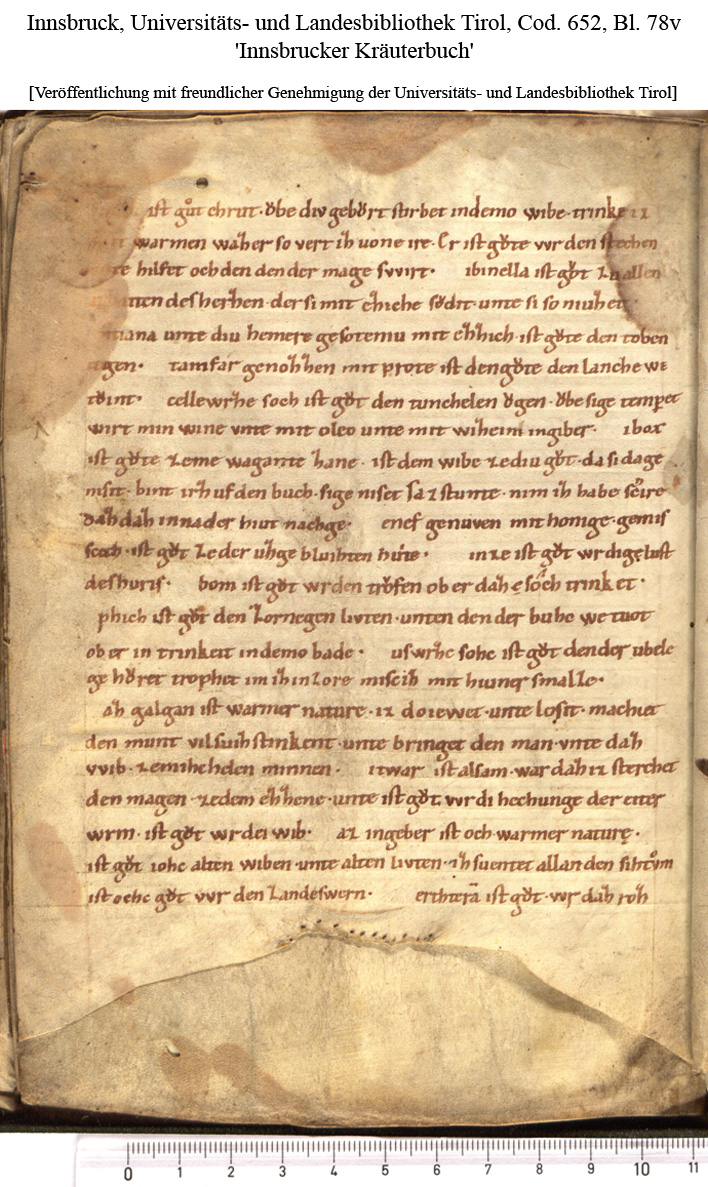 Innsbruck, Universitäts- und Landesbibliothek Tirol, Cod. 652, Bl. 78v
'Innsbrucker Kräuterbuch'
[Veröffentlichung mit freundlicher Genehmigung der Universitäts- und Landesbibliothek Tirol]
ist gůt chrut · obe div gebůrt stirbet in demo wibe · trinke
warmen waʒʒer so vert iʒ uone ire · Er ist gůte vvr den stechen
hilfet och den den der mage svvirt · ibinella ist gůt zu allen
des herʒen · der si mit eʒʒiche sůdit · unte si so niuʒet
unte diu hemere gesoteniu mit eʒʒich · ist gůte den toben
tamfar genoʒʒen mit prote ist den gůte den lanche we
tůint · cellewrʒe soch ist gůt den tunchelen ůgen · obe sige temperet
wirt min wine unte mit oleo unte mit wiʒeim ingiber · ibox
ist gůte zeme wagante ʒane · ist dem wibe ze diu gůt · da si dage
nisit · bint irʒ uf den buch · sige niset sa z stunte · nim iʒ habe sciere
daʒ daʒ innader hiut nachge · enef genuven mit honige · gemis
ist gůt ze der uʒge bluihten huire · in ze ist gůt wr dige lust
des huris · bom ist gůt wr den trůfen ob er daʒ e soch trinket ·
phich ist gůt den zornegen livten · unten den der buhc we tuot
ob er in trinkeit in demo bade · us wrʒe sohc ist gůt den der ubele
ge hůret trophet im iʒ in z ore misciʒ mit hůner smalze ·
aʒ galgan ist warmer nature · iz doiewet · unte losit · machiet
den munt vil suiʒ stinkent · unte bringet den man · unte daʒ
vvib · zemiʒchden minnen · itwar ist alsam · war daʒ iz sterchet
den magen · ze dem eʒʒene · unte ist gůt vvr di hechunge der eiter
wrm · ist gůt wr dei wib · az ingeber ist och warmer nature ·
ist gůt iohc alten wiben · unte alten livten · iʒ suentet allan den sihtům
ist oehc gůt vvr den lancleswern · ist gůt · wr daʒ roh
0 1 2 3 4 5 6 7 8 9 10 11